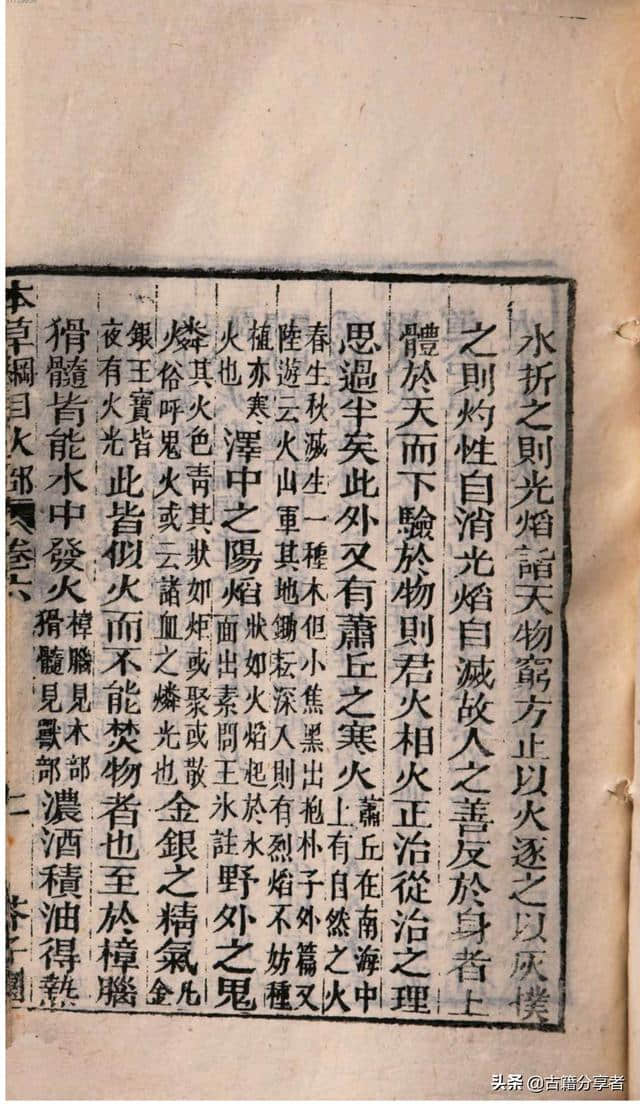 水折之則光焰詣天物窮方止以火逐之以灰撲
之則灼性自消光焰自滅故人之善反於身者上
體於天而下驗於物則君火相火正治從治之理
思過半矣此外又有蕭丘之寒火蕭丘在南海中上有自然之火
春生秋滅生一種木但小焦黑出抱朴子外篇又陸遊云火山軍其地鋤耘深入則有烈焰不妨種
植亦寒火也澤中之陽焰狀如火焰起於水面出素問王氷註野外之鬼
燐其火色靑其狀如炬或聚或散俗呼鬼火或云諸血之燐光也金銀之精氣凡金
銀王寶皆夜有火光此皆似火而不能焚物者也至於樟腦
猾髓皆能水中發火樟腦見木部猾髓見獸部濃酒積油得熱
本草綱目火部 卷六 芥子園
头条 @古籍分享者